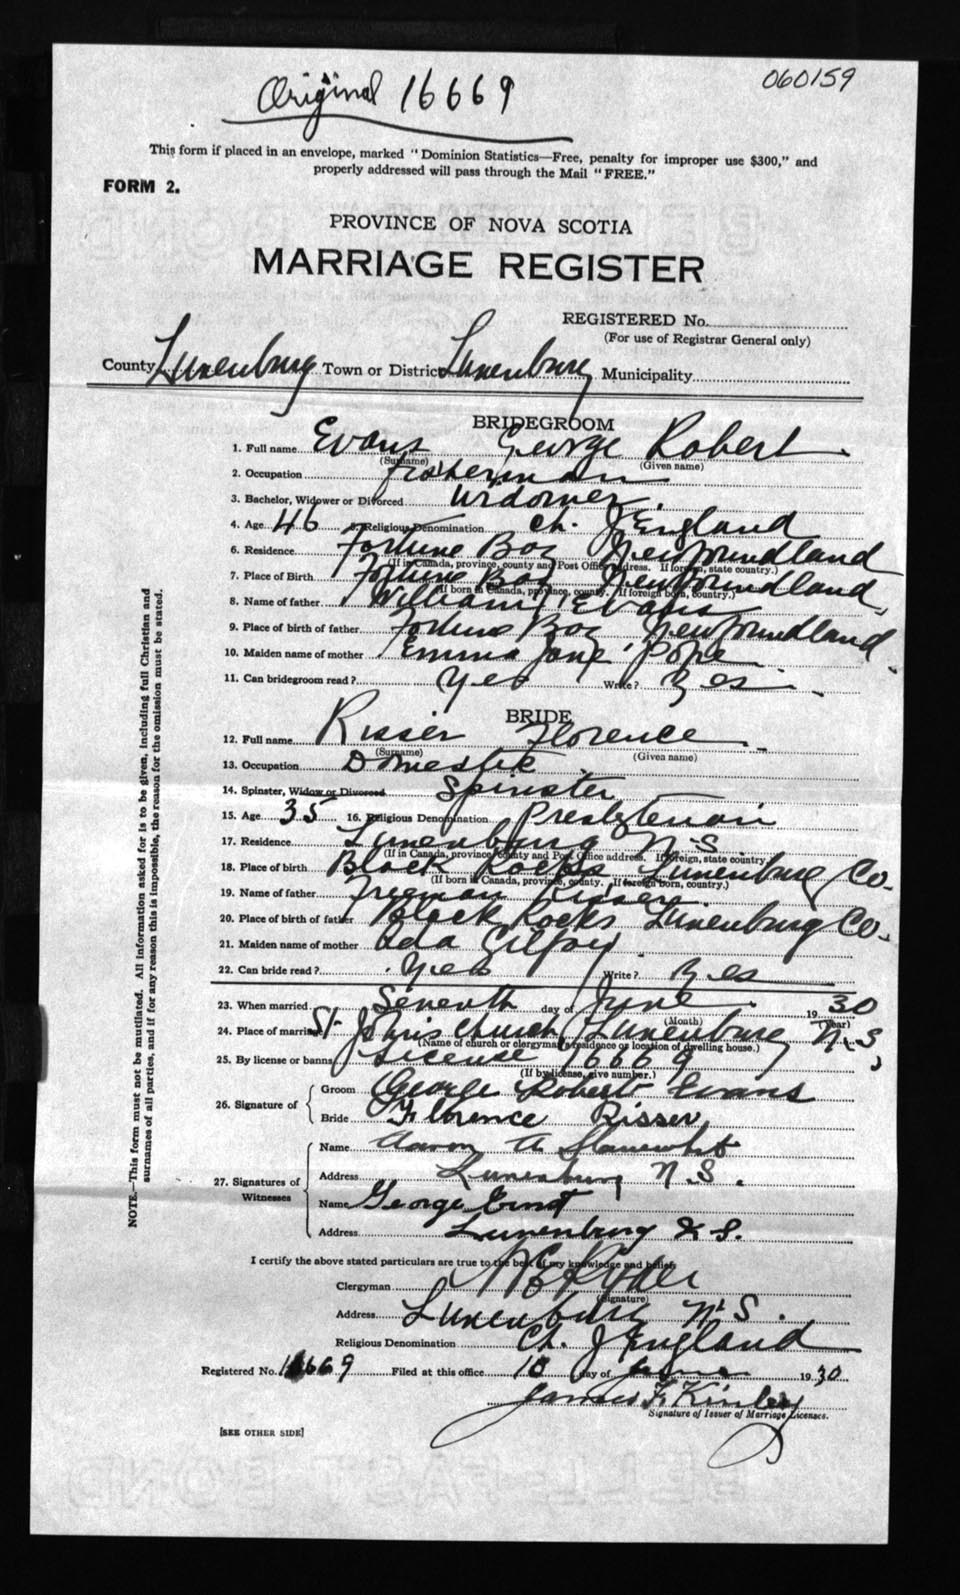 Original 16669
060159
This form if placed in an envelope, marked "Dominion Statistics—Free, penalty for improper use $300," and
properly addressed will pass through the Mail "FREE."
FORM 2.
PROVINCE OF NOVA SCOTIA
MARRIAGE REGISTER
REGISTERED No.
(For use of Registrar General only)
County Lunenburg Town or District Lunenburg Municipality
BRIDEGROOM
1. Full name Evans George Robert
(Surname) (Given name)
2. Occupation Fisherman
3. Bachelor, Widower or Divorced Widower
4. Age 46 5. Religious Denomination Ch. of England
6. Residence Fortune Bay Newfoundland
(If in Canada, province, county and Post Office address. If foreign, state country.)
7. Place of Birth Fortune Bay Newfoundland
(If born in Canada, province, county. If foreign born, country.)
8. Name of father William Evans
9. Place of birth of father Fortune Bay Newfoundland
10. Maiden name of mother Emma Jane Pope
11. Can bridegroom read? Yes Write? Yes
BRIDE
12. Full name Risser Florence
(Surname) (Given name)
13. Occupation Domestic
14. Spinster, Widow or Divorced Spinster
15. Age 35 16. Religious Denomination Presbyterian
17. Residence Lunenburg N.S
(If in Canada, province, county and Post Office address. If foreign, state country
18. Place of birth Black Rocks Lunenburg Co.
(If born in Canada, province, county. If foreign born, country.)
19. Name of father Freeman Risser
20. Place of birth of father Black Rocks Lunenburg Co.
21. Maiden name of mother Ada
22. Can bride read? Yes Write? Yes
23. When married Seventh day of June 1930
(Month) (Year)
24. Place of marriage St. Church Lunenburg N.S,
(Name of church or clergyman's residence or location of dwelling house.)
25. By license or banns License 16669
(If by license, give number.)
26. Signature of
Groom George Robert Evans
Bride Florence Risser
27. Signatures of Witnesses
Name Aaron A
Address Lunenburg N.S.
Name George Ernst
Address Lunenburg N.S.
I certify the above stated particulars are true to the best of my knowledge and belief:
Clergyman Ryder
(Signature)
Address Lunenburg N.S.
Religious Denomination Ch. of England
Registered No. 16669 Filed at this office 10 day of June 1930
James F. Kinley
Signature of Issuer of Marriage Licenses.
[SEE OTHER SIDE]
NOTE.—This form must not be mutilated. All information asked for is to be given, including full Christian and
surnames of all parties, and if for any reason this is impossible, the reason for the omission must be stated.